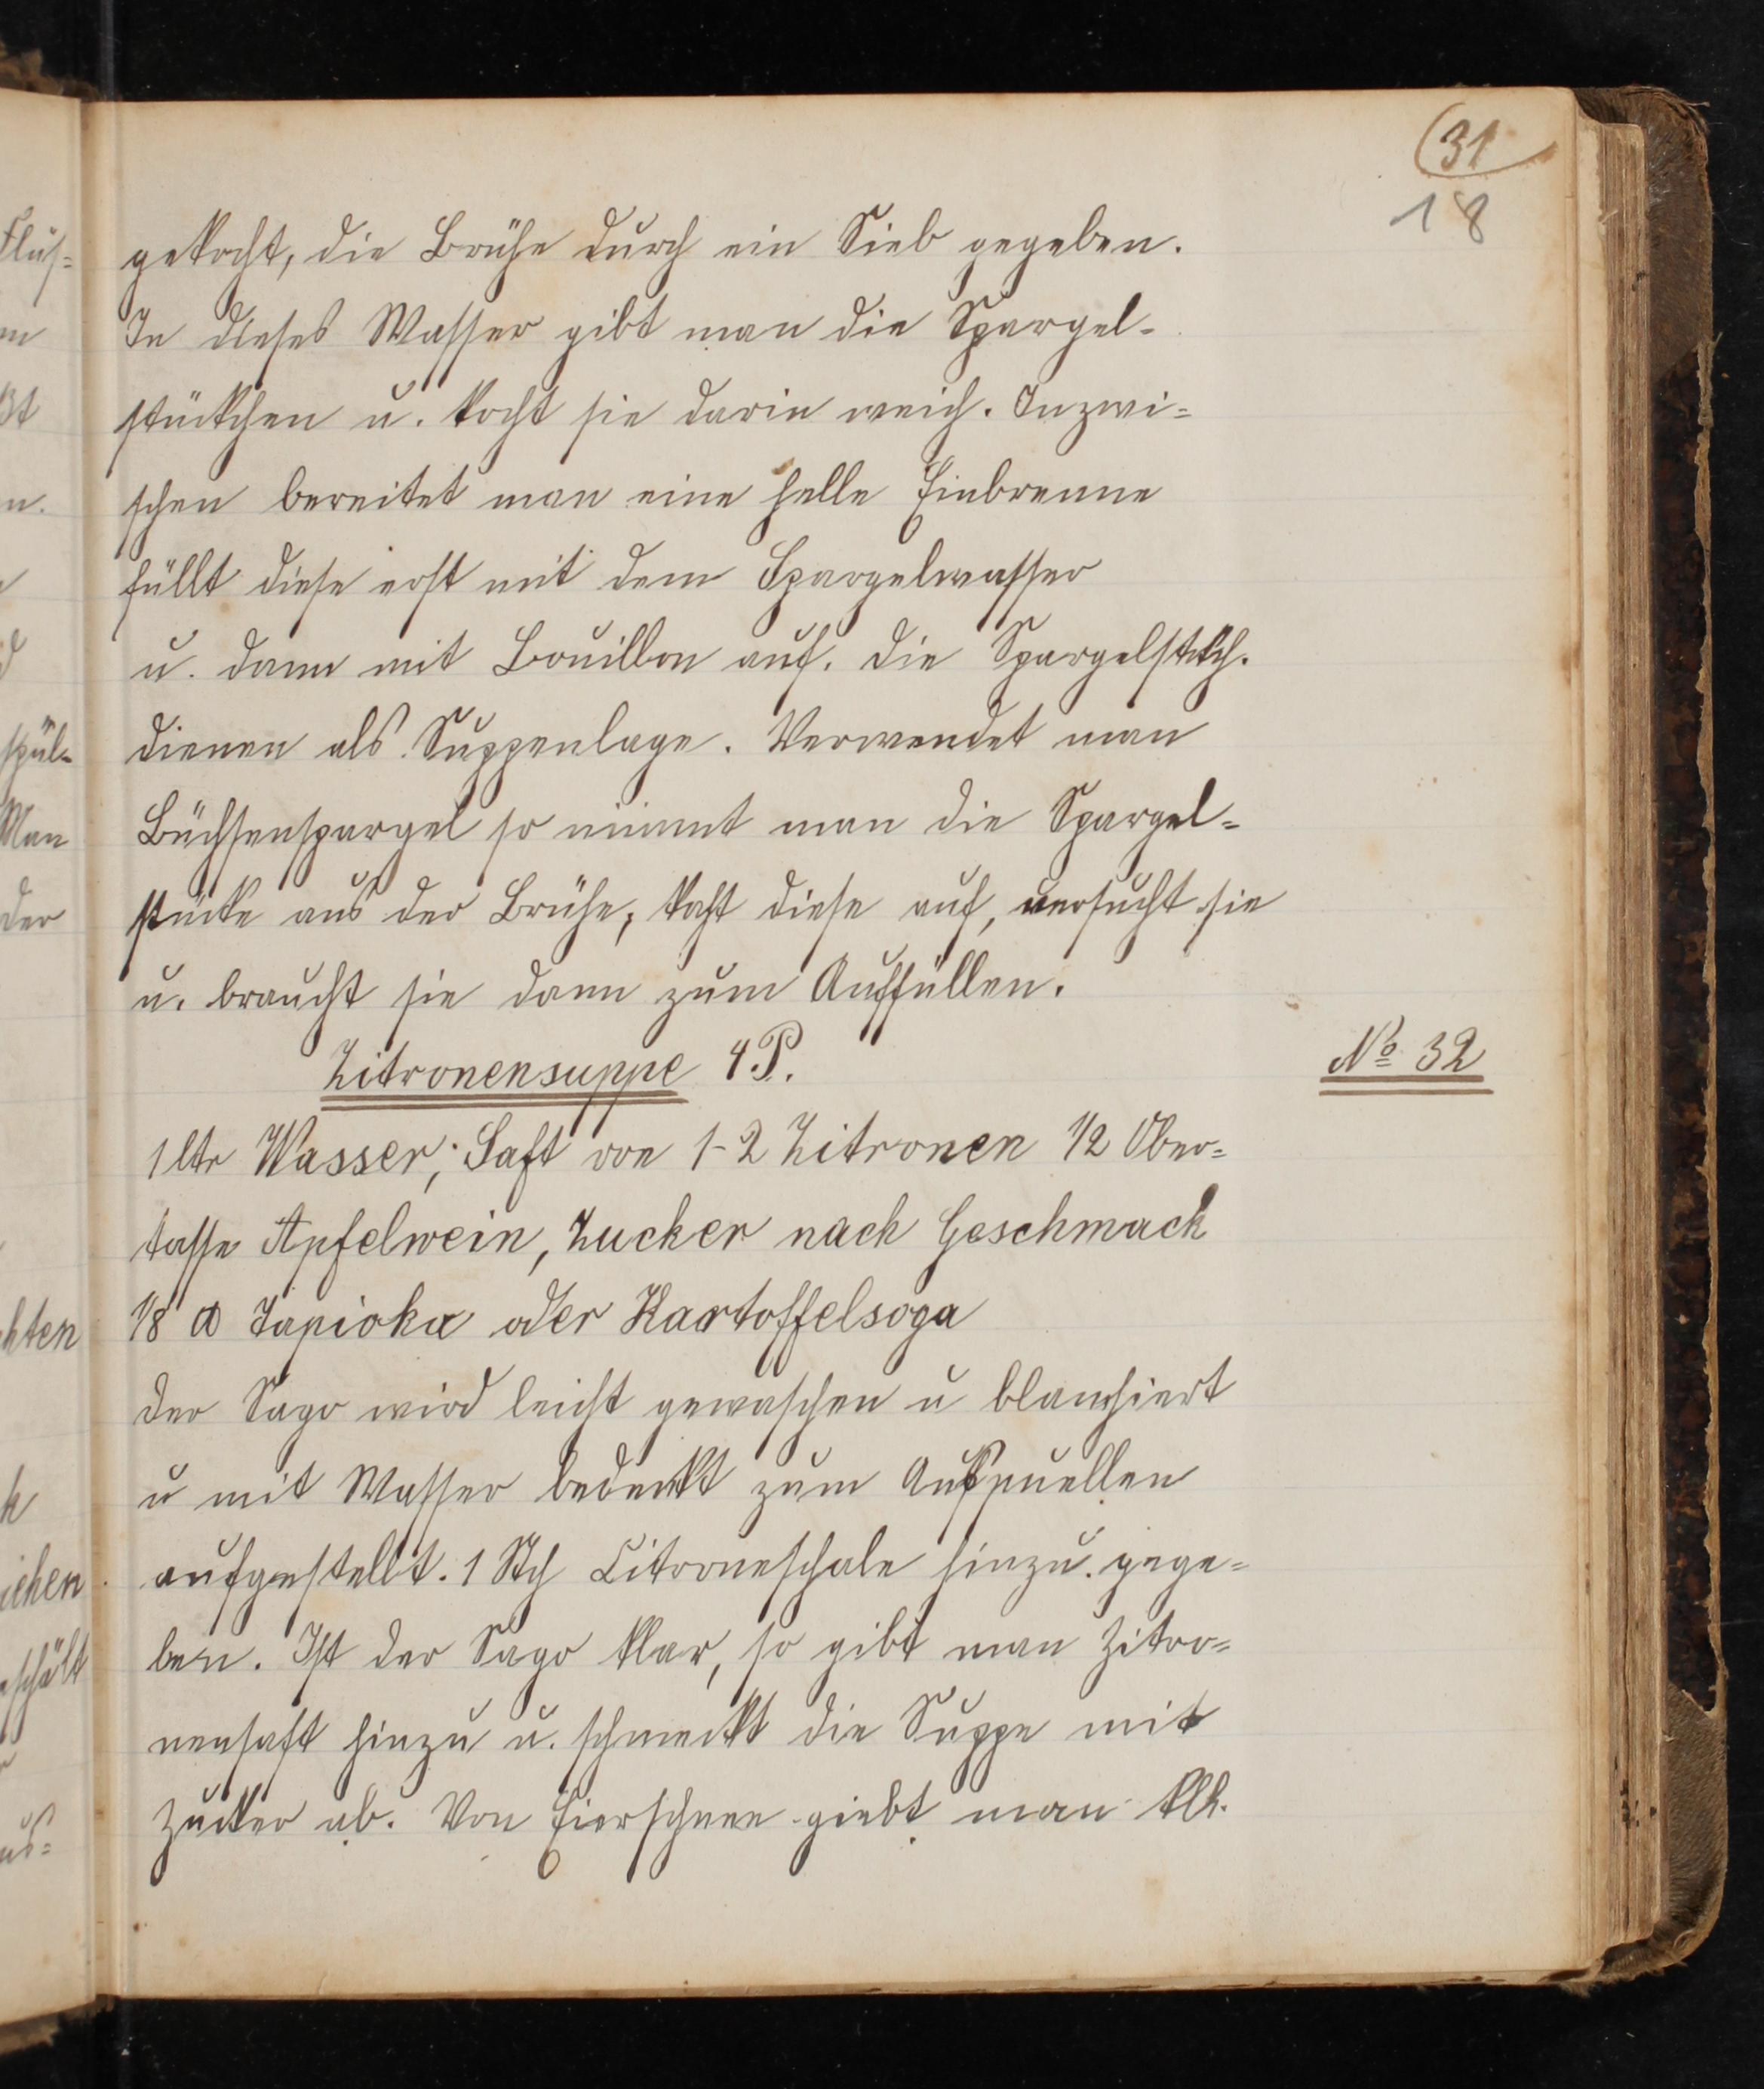 31
18
gekocht, die Brühe durch ein Sieb gegeben.
In dieses Wasser gibt man die Spargel-
stückchen u. kocht sie darin weich. Inzwi-
schen bereitet man eine helle Einbrenne
füllt diese erst mit dem Spargelwasser
u. dann mit Bouillon auf. Die Spargelstkch.
dienen als Suppenlage. Verwendet man
Büchsenspargel so nimmt man die Spargel-
stücke aus der Brühe, kocht diese auf, versucht sie
u. braucht sie dann zum Auffüllen.
Zitronensuppe 4 P. No 32
1 ltr Wasser, Saft von 1-2 Zitronen 1/2 Ober-
tasse Apfelwein, Zucker nach Geschmack
1/8 ℔ Tapioka oder Kartoffelsoga
Der Sago wird leicht gewaschen u blanchiert
u mit Wasser bedeckt zum Aufquellen
aufgestellt. 1 Stch Citroneschale hinzu gege-
ben. Ist der Sago klar, so gibt man Zitro-
nensaft hinzu u. schmeckt die Suppe mit
Zucker ab. Von Eierschnee giebt man kll.
Flus-
m
ßt
n.
d
spül-
Man
der
hten
k
ichen
schält
us-